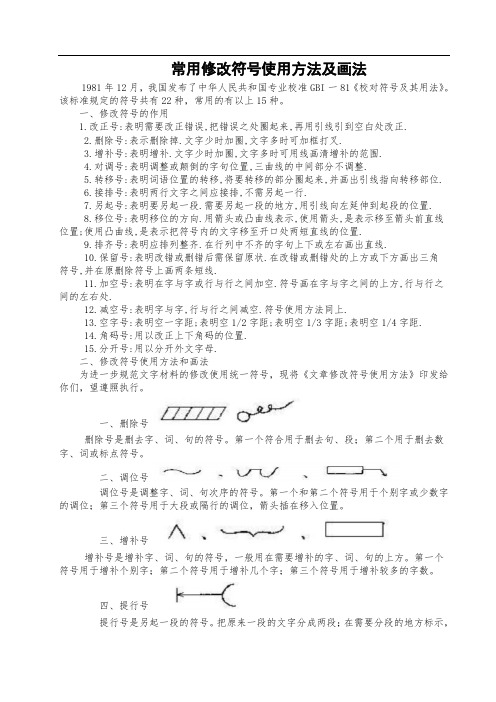 常用修改符号使用方法及画法
1981年12月，我国发布了中华人民共和国专业校准GBI一81《校对符号及其用法》。
该标准规定的符号共有22种，常用的有以上15种。
一、修改符号的作用
1.改正号:表明需要改正错误,把错误之处圈起来,再用引线引到空白处改正.
2.删除号:表示删除掉.文字少时加圈,文字多时可加框打叉.
3.增补号:表明增补.文字少时加圈,文字多时可用线画清增补的范围.
4.对调号:表明调整或颠倒的字句位置,三曲线的中间部分不调整.
5.转移号:表明词语位置的转移,将要转移的部分圈起来,并画出引线指向转移部位.
6.接排号:表明两行文字之间应接排,不需另起一行.
7.另起号:表明要另起一段.需要另起一段的地方,用引线向左延伸到起段的位置.
8.移位号:表明移位的方向.用箭头或凸曲线表示,使用箭头,是表示移至箭头前直线
位置;使用凸曲线,是表示把符号内的文字移至开口处两短直线的位置.
9.排齐号:表明应排列整齐.在行列中不齐的字句上下或左右画出直线.
10.保留号:表明改错或删错后需保留原状.在改错或删错处的上方或下方画出三角
符号,并在原删除符号上画两条短线.
11.加空号:表明在字与字或行与行之间加空.符号画在字与字之间的上方,行与行之
间的左右处.
12.减空号:表明字与字,行与行之间减空.符号使用方法同上.
13.空字号:表明空一字距;表明空1/2字距;表明空1/3字距;表明空1/4字距.
14.角码号:用以改正上下角码的位置.
15.分开号:用以分开外文字母.
二、修改符号使用方法和画法
为进一步规范文字材料的修改使用统一符号，现将《文章修改符号使用方法》印发给
你们，望遵照执行。
一、删除号
删除号是删去字、词、句的符号。第一个符合用于删去句、段；第二个用于删去数
字、词或标点符号。
二、调位号 、 、
调位号是调整字、词、句次序的符号。第一个和第二个符号用于个别字或少数字
的调位；第三个符号用于大段或隔行的调位，箭头插在移入位置。
三、增补号 、 、
增补号是增补字、词、句的符号，一般用在需要增补的字、词、句的上方。第一个
符号用于增补个别字；第二个符号用于增补几个字；第三个符号用于增补较多的字数。
四、提行号
提行号是另起一段的符号。把原来一段的文字分成两段；在需要分段的地方标示，